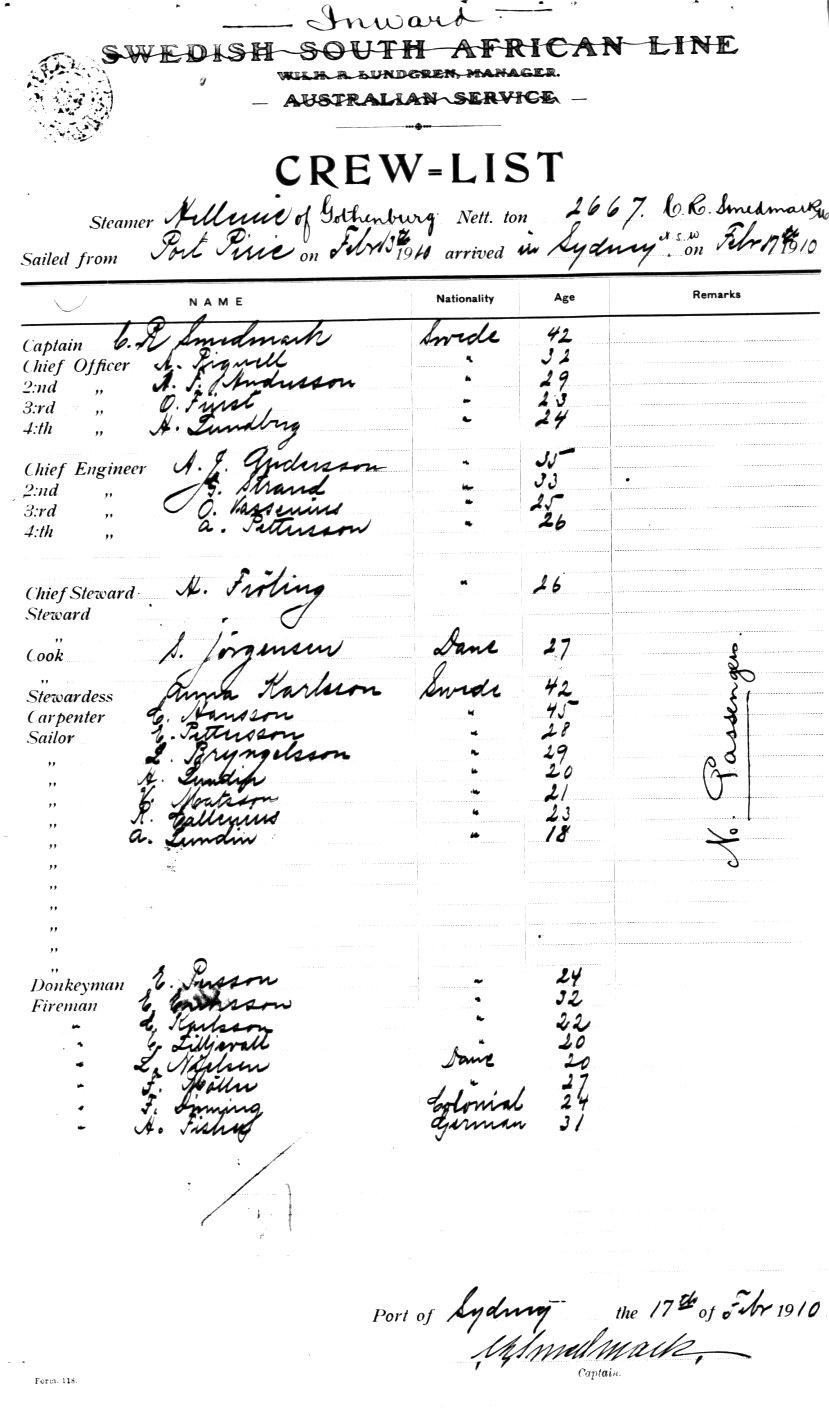 Inward
SWEDISH SOUTH AFRICAN LINE
WILH. R. LUNDGREN, MANAGER.
— AUSTRALIAN SERVICE —
CREW=LIST
Steamer Hellenic of Gothenburg Nett. ton 2667. C. R. Smedmark
Sailed from Port Pirie on Febr 13th 1910 arrived in Sydney N.S.W on Febr 17th 1910
NAME Nationality Age Remarks
Captain C. R Smedmark Swede 42
Chief Officer A. " 32
2:nd " A. F. Andersson " 29
3:rd " O. Fürst " 23
4:th " H. Lundberg " 24
Chief Engineer A. J. Andersson " 35
2:nd " G. Strand " 33
3:rd " O. Vassenius " 25
4:th " A. Pettersson " 26
Chief Steward H. Fröling " 26
Steward
"
Cook S. Jörgensen Dane 27
"
Stewardess Anna Karlsson Swede 42
Carpenter C. Hansson " 45
Sailor E. Pettersson " 28
" Bryngelsson " 29
" H. Lundin " 20
" K. Matsson " 21
" R. " 23
" A. Lundin " 18
"
"
"
"
"
"
Donkeyman E. Persson " 24
Fireman E. " 32
" Karlsson " 22
" C. Liljevall " 20
" L. Nielsen Dane 20
" F. Möller " 27
" F. Colonial 24
" H. Fisher German 31
No. Passengers.
Port of Sydney the 17th of Febr 1910
C R Smedmark.
Captain.
Form. 118.